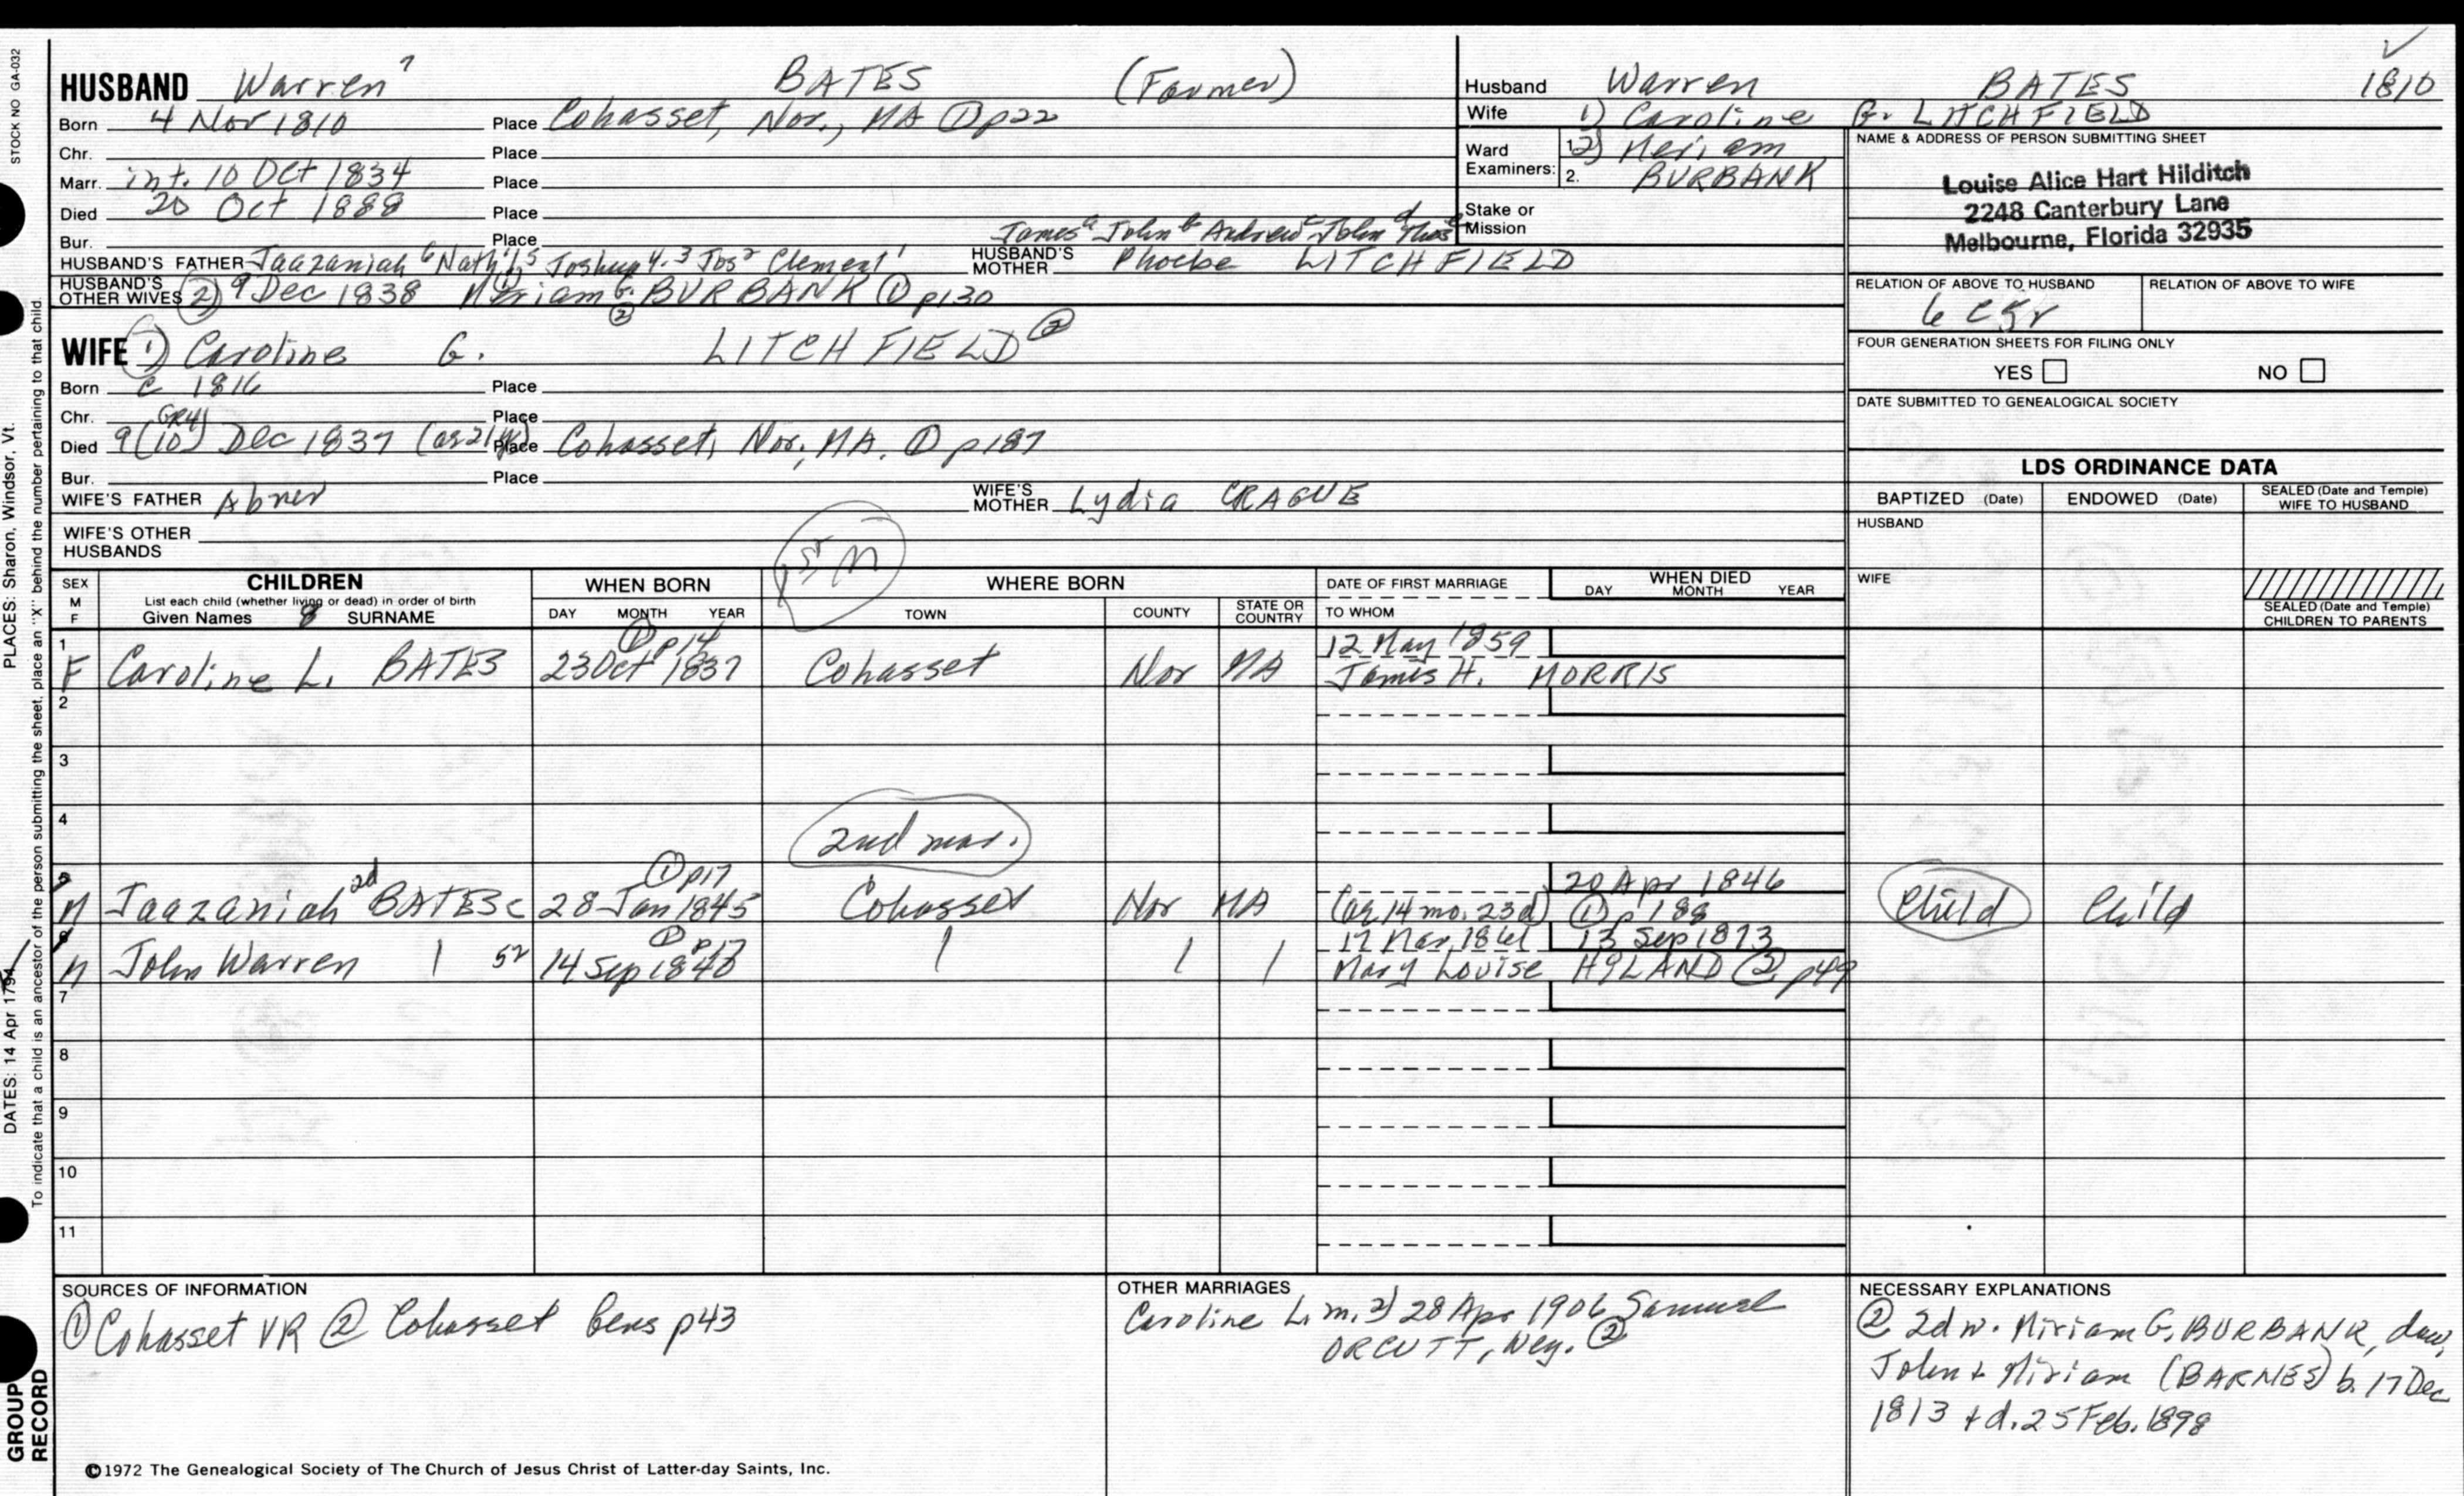 STOCK NO GA-032
HUSBAND Warren 7 BATES (Farmer)
Born 4 Nov 1810 Place Cohasset, Nor., MA ① p22
Chr. Place
Marr. int. 10 Oct 1834 Place
Died 20 Oct 1888 Place
Bur. Place
James a John b Andrew c John d Thos e
HUSBAND'S FATHER Jaazaniah 6 Nath'l 5 Joshua 4.3 Jos 2 Clement 1 HUSBAND'S MOTHER Phoebe LITCHFIELD
HUSBAND'S OTHER WIVES (2) 9 Dec 1838 Miriam G. BURBANK ① p130
②
WIFE 1) Caroline G. LITCHFIELD ②
Born c 1816 Place
Chr. Place
GR4
Died 9 (10) Dec 1837 (as 21 yr) Place Cohasset, Nor, MA. ① p187
Bur. Place
WIFE'S FATHER Abner WIFE'S MOTHER Lydia CRAGUE
WIFE'S OTHER HUSBANDS
Husband Warren BATES 1810
Wife 1) Caroline G. LITCHFIELD
Ward Examiners: 1. 2) Meriam
2. BURBANK
Stake or Mission
NAME & ADDRESS OF PERSON SUBMITTING SHEET
Louise Alice Hart Hilditch
2248 Canterbury Lane
Melbourne, Florida 32935
RELATION OF ABOVE TO HUSBAND RELATION OF ABOVE TO WIFE
6 C5r
FOUR GENERATION SHEETS FOR FILING ONLY
YES NO
DATE SUBMITTED TO GENEALOGICAL SOCIETY
LDS ORDINANCE DATA
BAPTIZED (Date) ENDOWED (Date) SEALED (Date and Temple) WIFE TO HUSBAND
HUSBAND
WIFE
SEALED (Date and Temple) CHILDREN TO PARENTS
1st M
SEX M F CHILDREN WHEN BORN WHERE BORN DATE OF FIRST MARRIAGE WHEN DIED
List each child (whether living or dead) in order of birth
Given Names SURNAME DAY MONTH YEAR TOWN COUNTY STATE OR COUNTRY TO WHOM DAY MONTH YEAR
1 ① p14 12 May 1859
F Caroline L. BATES 23 Oct 1837 Cohasset Nor MA James H. MORRIS
2
3
4
2nd mar.
5 ① p17 20 Apr 1846
M Jaazaniah 2d BATES c 28 Jan 1845 Cohasset Nor MA (as 14 mo. 23d) ① p 188 Child Child
6 ① p17 13 Sep 1873
M John Warren 52 14 Sep 1848 Mary Louise HYLAND ② p49
7
8
9
10
11
SOURCES OF INFORMATION
① Cohasset VR ② Cohasset Gens p43
OTHER MARRIAGES
Caroline L. m. 2) 28 Apr 1906 Samuel
ORCUTT, Wey. ②
NECESSARY EXPLANATIONS
② 2d w. Miriam G. BURBANK, dau.
John + Miriam (BARNES) b. 17 Dec
1813 + d. 25 Feb. 1898
©1972 The Genealogical Society of The Church of Jesus Christ of Latter-day Saints, Inc.
PLACES: Sharon, Windsor, Vt.
DATES: 14 Apr 1794
To indicate that a child is an ancestor of the person submitting the sheet, place an "X" behind the number pertaining to that child.
GROUP RECORD